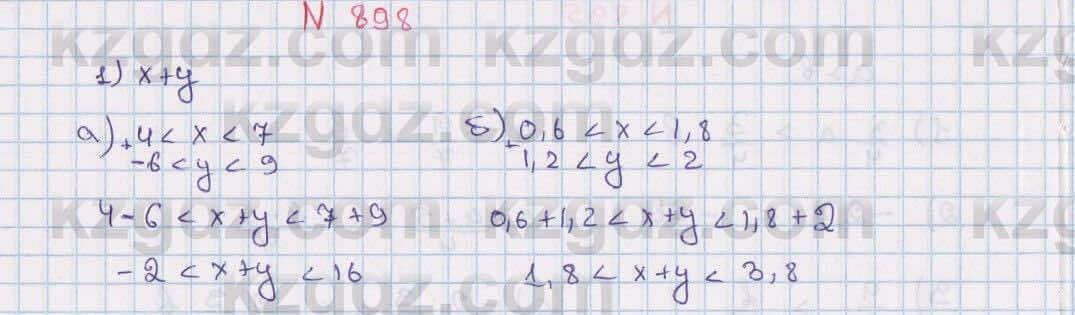 N 898
kzgdz.com kzgdz.com kzgdz.com
1) x+y
а) + 4 < x < 7
-6 < y < 9
kzgdz.com
б) + 0,6 < x < 1,8
1,2 < y < 2
4 - 6 < x+y < 7 + 9
0,6 + 1,2 < x+y < 1,8 + 2
kzgdz.com kzgdz.com
-2 < x+y < 16
1,8 < x+y < 3,8
kzgdz.com